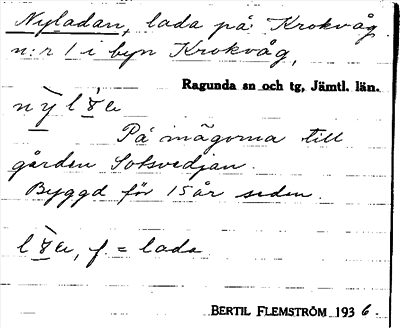 Nyladan, lada på Krokvåg
n:r 1 i byn Krokvåg,
Ragunda sn och tg, Jämtl. län.
På mägorna till
gården Sotsvedjan.
Byggd för 15 år sedan.
f. = lada
BERTIL FLEMSTRÖM 1936.